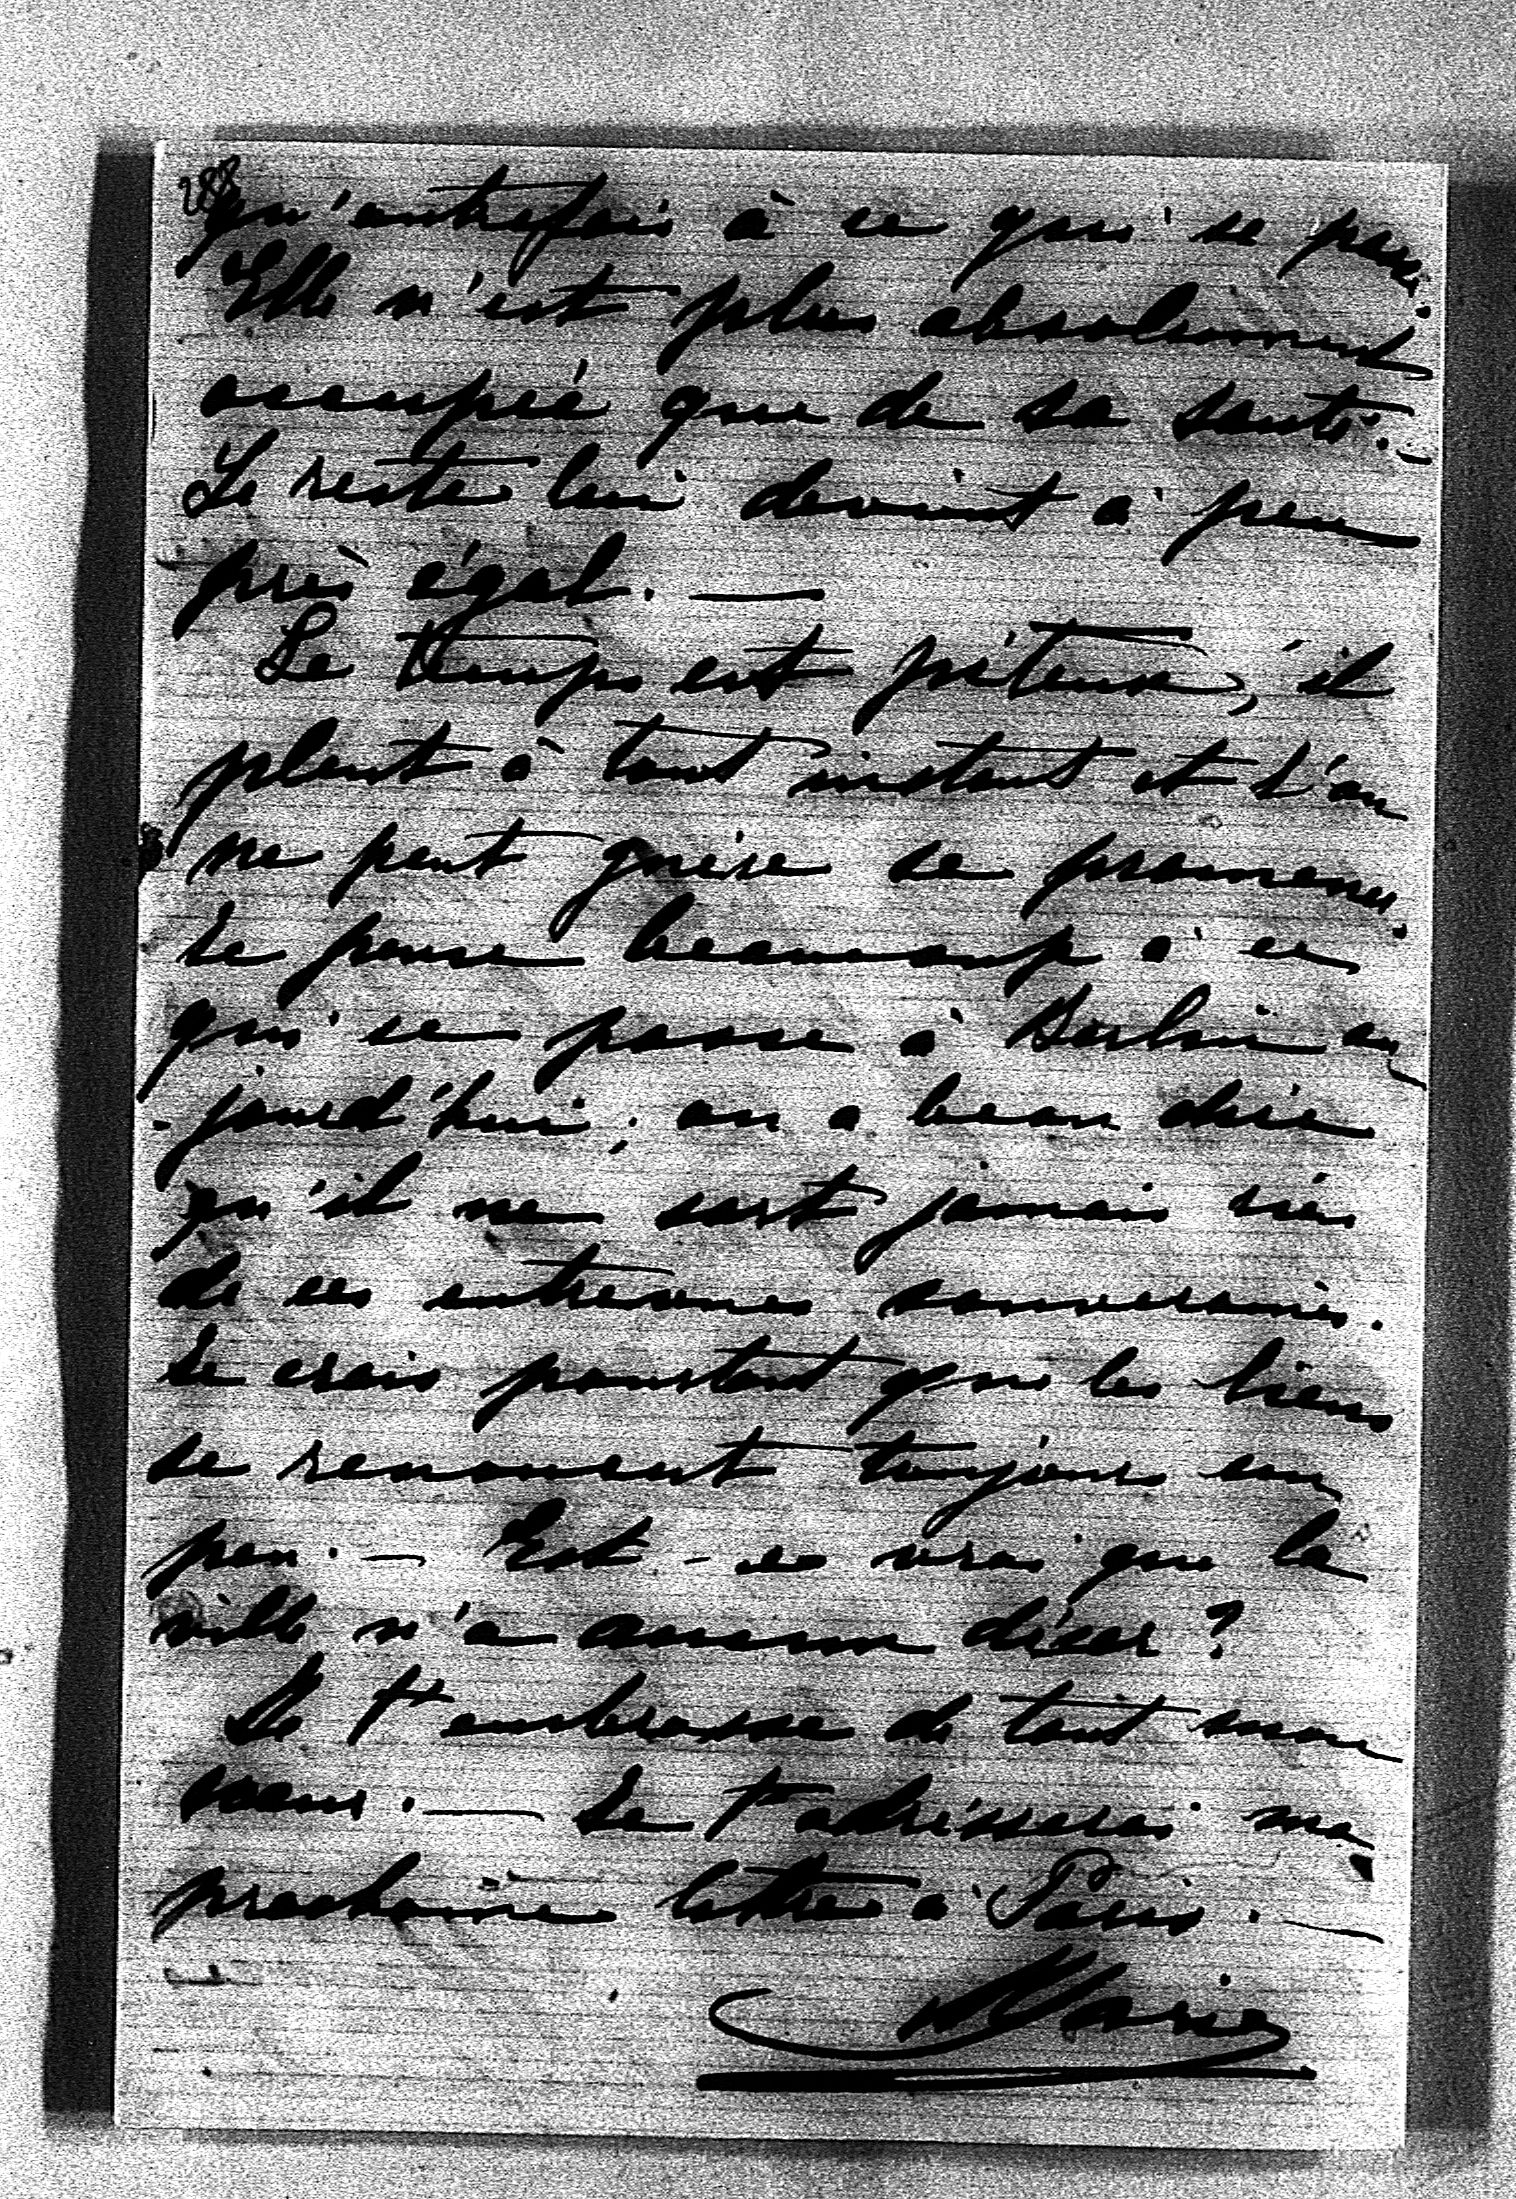 288
qu'autrefois à ce qui se passe.
Elle n'est plus absolument
occupée que de sa santé. —
Le reste lui devient à peu
près égal. —
Le temps est piteux, il
pleut à tout instant et l'on
ne peut guère se promener.
Je pense beaucoup à ce
qui se passe à Berlin au
jourd'hui; on a beau dire
qu'il ne sort jamais rien
de ces entrevues souveraines.
Je crois pourtant que les liens
se renouent toujours un
peu. — Est-ce vrai que la
ville n'a aucun décor?
Je t'embrasse de tout mon
cœur. — Je t'adresserai ma
prochaine lettre à Paris. —
Marie